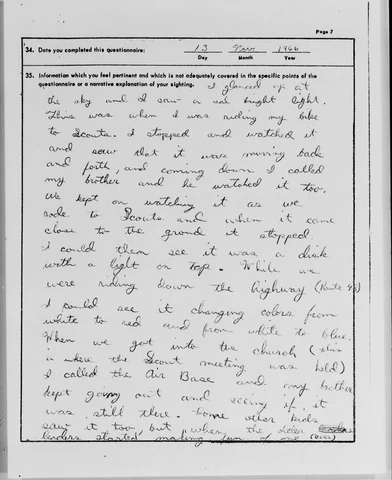 Page 7
34. Date you completed this questionnaire: 13 Nov 1966
Day Month Year
35. Information which you feel pertinent and which is not adequately covered in the specific points of the
questionnaire or a narrative explanation of your sighting.
I glanced up at
the sky and I saw a real bright light.
This was when I was riding my bike
to Scouts. I stopped and watched it
and saw that it was moving back
and forth, and coming down. I called
my brother and he watched it too.
We kept on watching it as we
rode to Scouts and when it came
close to the ground it stopped
I could them see it was a disk
with a light on top. While we
were riding down the highway (Route
I could see it changing colors from
white to red and from white to blue.
When we got into the church (this
is where the Scout meeting was held)
I called the Air Base and my brother
kept going out and seeing if it
was still there. Some other kids
saw it too but when the older
leaders started making fun of me (over)